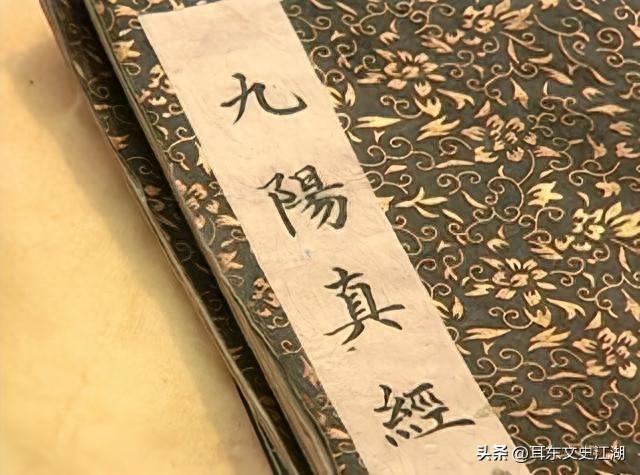 九陽真經
头条 @耳东文史江湖